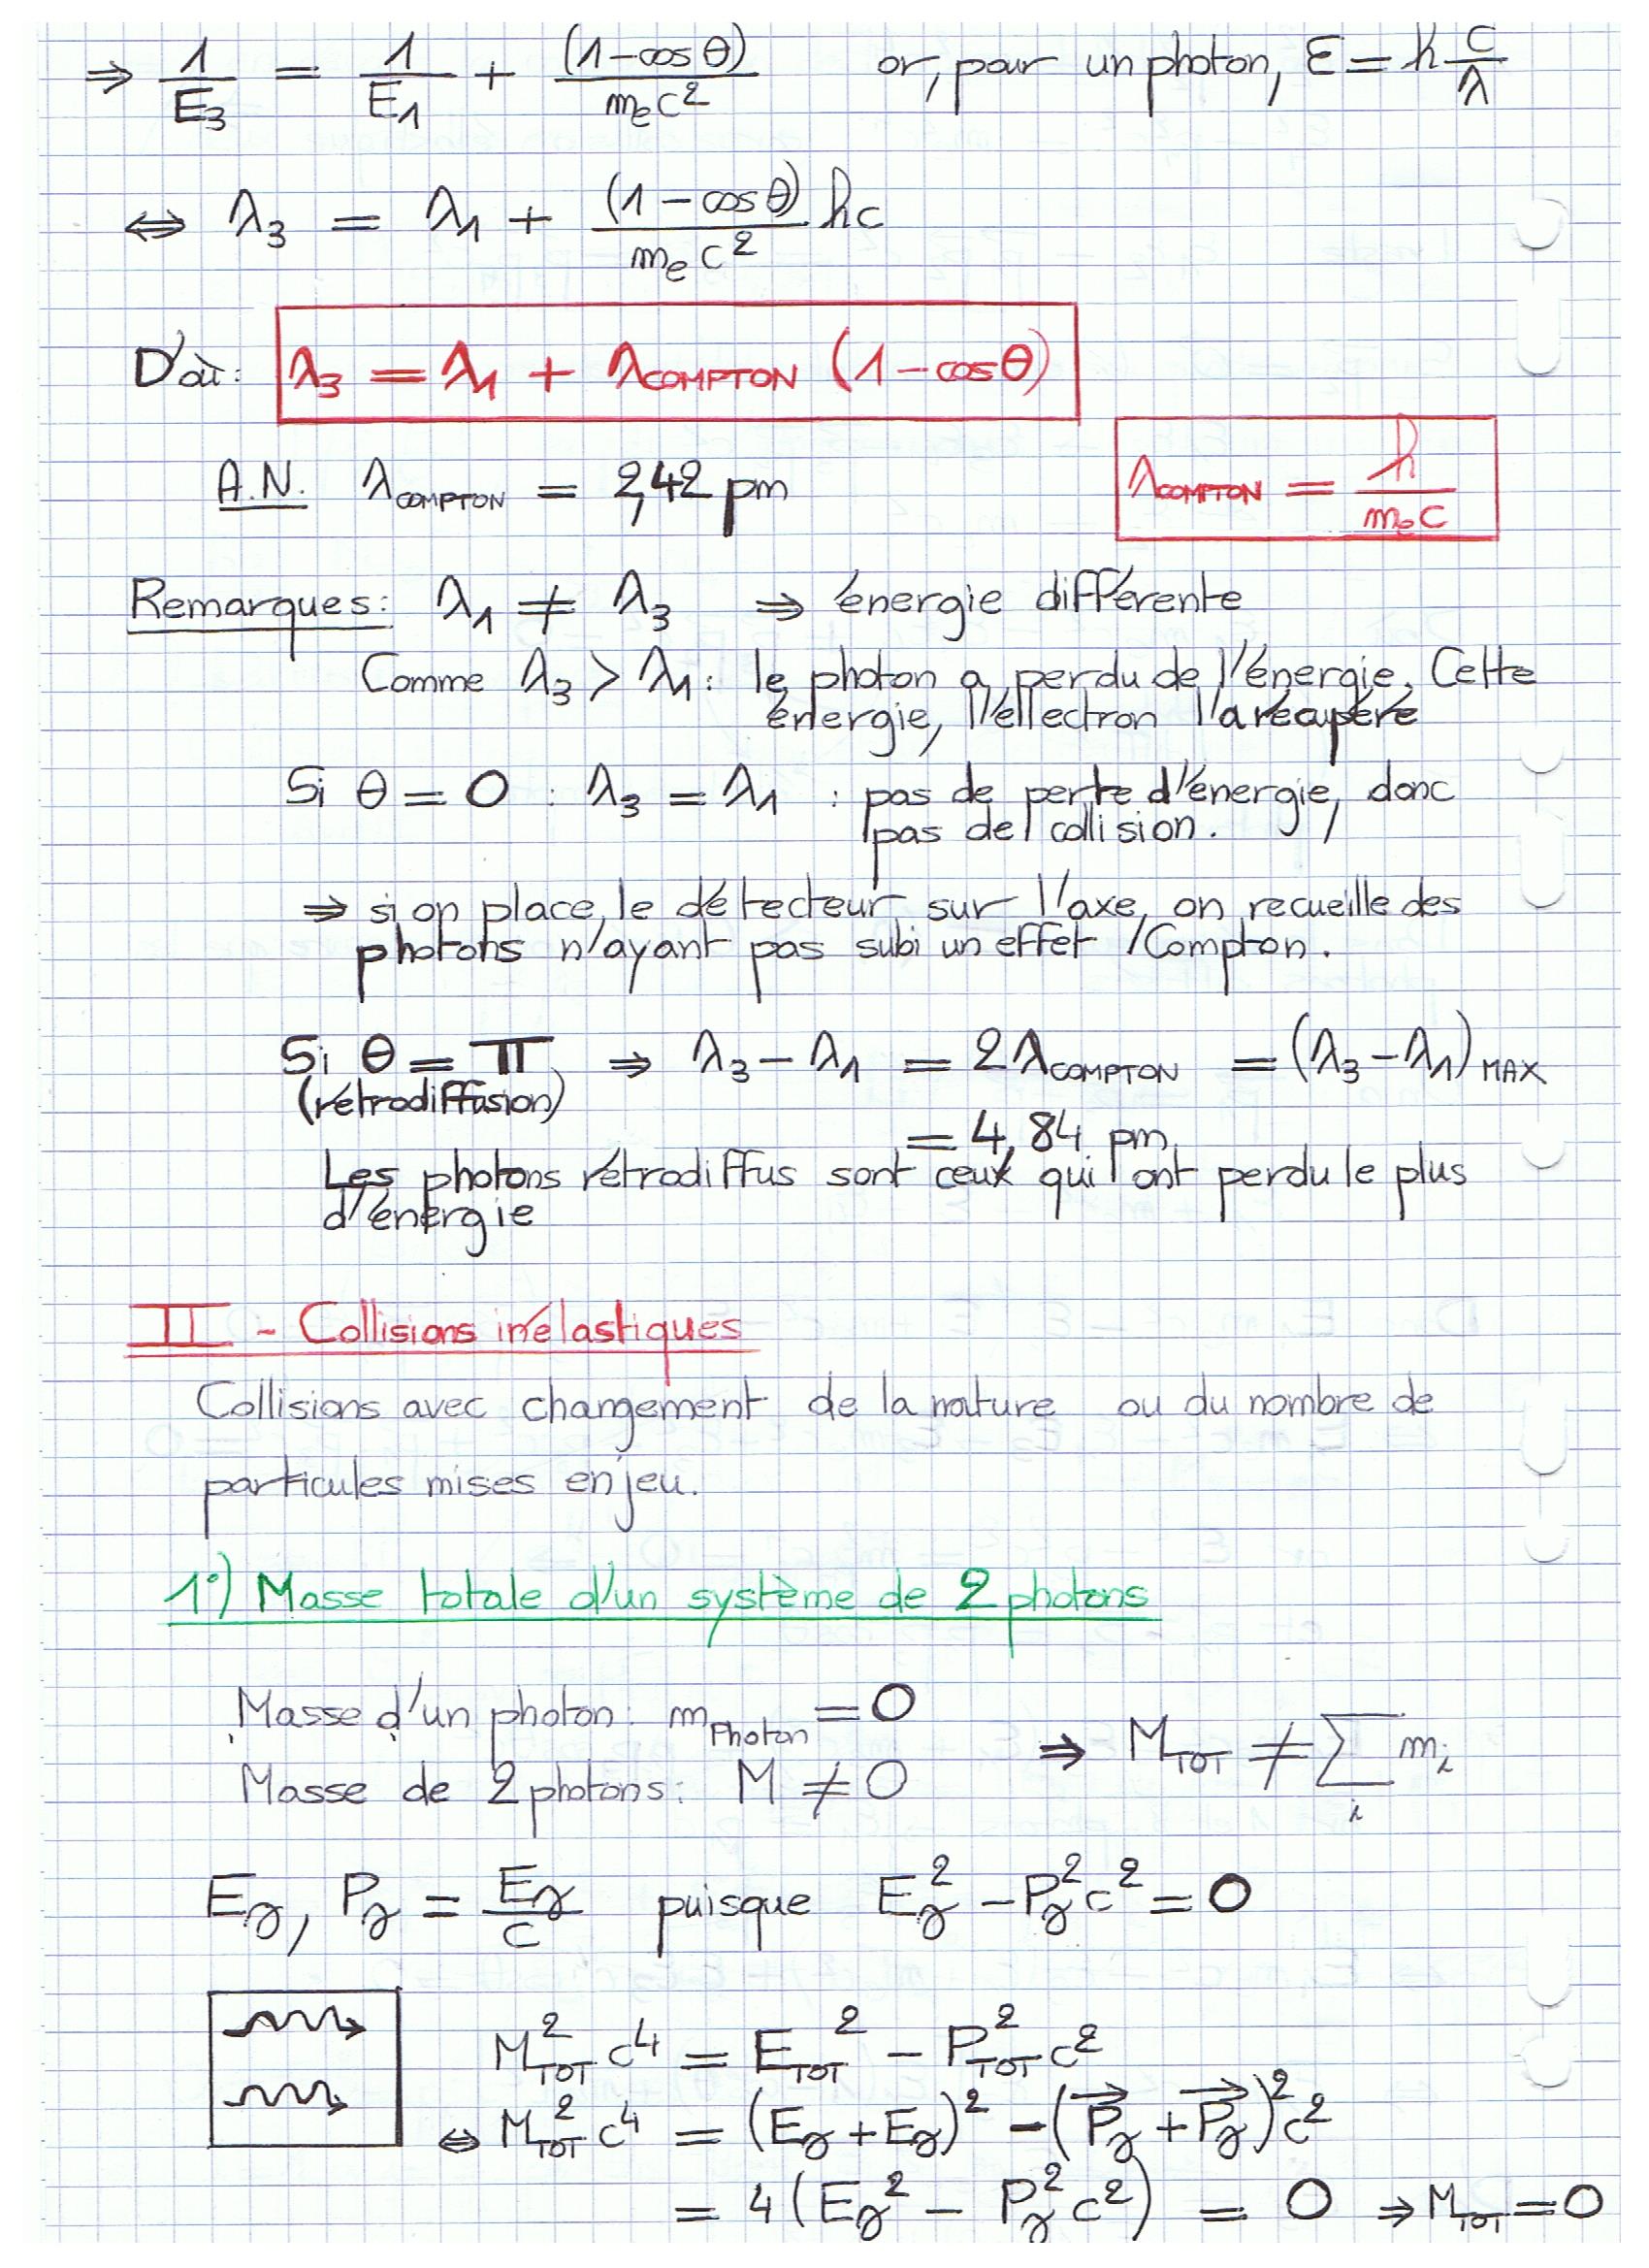 ⇒ 1/E₃ = 1/E₁ + (1-cos θ)/mₑc² or, pour un photon, E = h c/λ
⇔ λ₃ = λ₁ + (1-cosθ)/mₑc² hc
D'où: λ₃ = λ₁ + λCOMPTON (1-cosθ)
A.N. λCOMPTON = 2,42 pm λCOMPTON = h/mₑc
Remarques: λ₁ ≠ λ₃ ⇒ énergie différente
Comme λ₃ > λ₁: le photon a perdu de l'énergie. Cette
énergie, l'éllectron l'a récupéré
Si θ = 0 : λ₃ = λ₁ : pas de perte d'énergie, donc
pas de collision.
⇒ si on place le détecteur sur l'axe, on recueille des
photons n'ayant pas subi un effet Compton.
Si θ = π ⇒ λ₃ - λ₁ = 2λCOMPTON = (λ₃-λ₁)MAX
(rétrodiffusion)
= 4,84 pm
Les photons rétrodiffus sont ceux qui ont perdu le plus
d'énergie
II - Collisions inélastiques
Collisions avec changement de la nature ou du nombre de
particules mises en jeu.
1°) Masse totale d'un système de 2 photons
Masse d'un photon: mPhoton = 0
⇒ MTOT ≠ ∑ᵢ mᵢ
Masse de 2 photons: M ≠ 0
Eγ, Pγ = Eγ/c puisque Eγ² - Pγ²c² = 0
MTOT² c⁴ = ETOT² - PTOT² c²
⇔ MTOT² c⁴ = (Eγ + Eγ)² - (P⃗γ + P⃗γ)² c²
= 4(Eγ² - Pγ²c²) = 0 ⇒ MTOT = 0